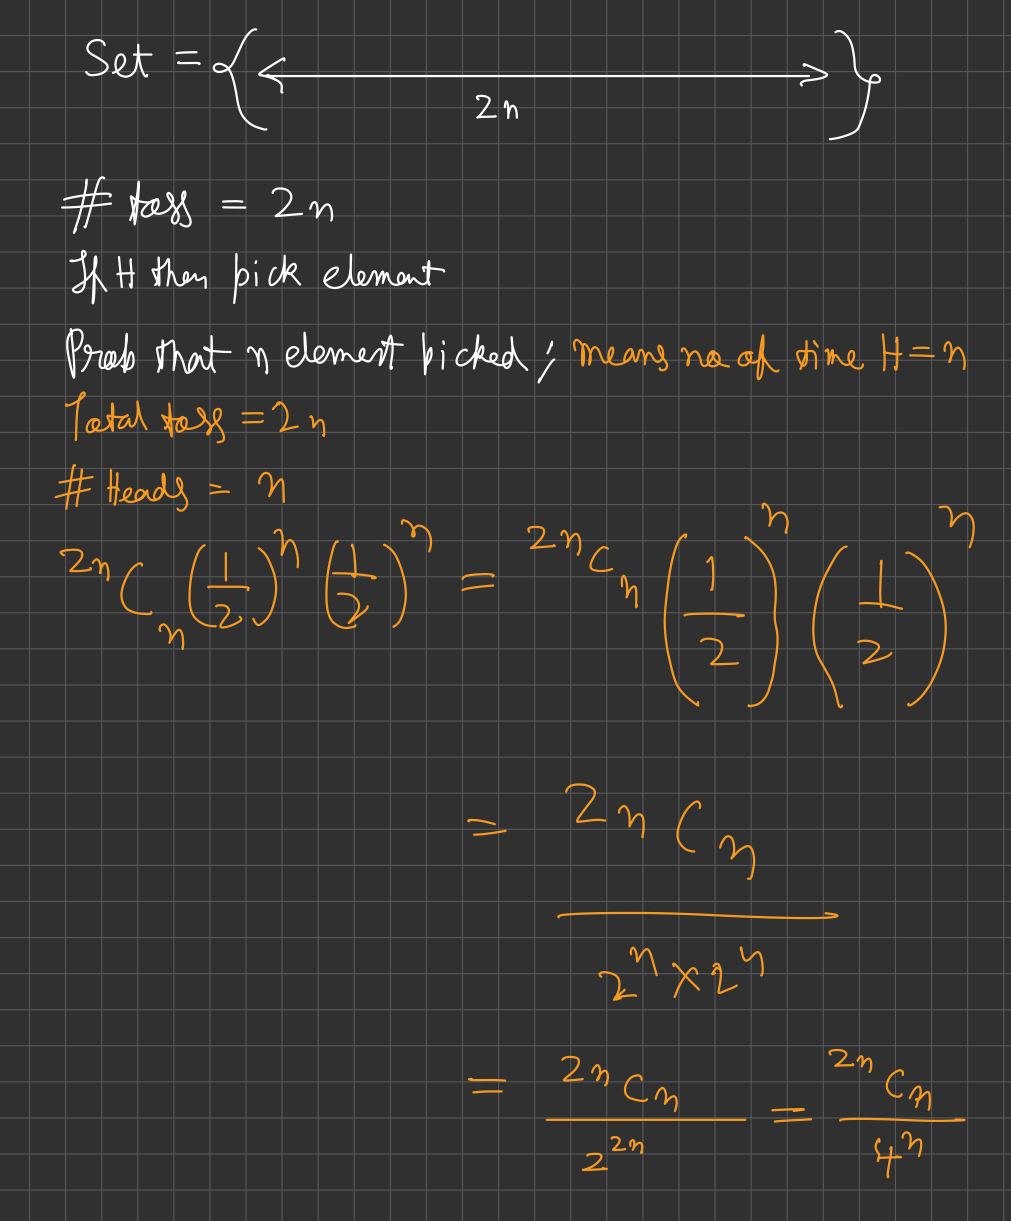 Set = { 2n }
# toss = 2n
If H then pick element
Prob that n element picked ; means no of time H = n
Total toss = 2n
# Heads = n
²ⁿCₙ (1/2)ⁿ (1/2)ⁿ = ²ⁿCₙ (1/2)ⁿ (1/2)ⁿ
= 2nCₙ / 2ⁿ × 2ⁿ
= ²ⁿCₙ / 2²ⁿ = ²ⁿCₙ / 4ⁿ